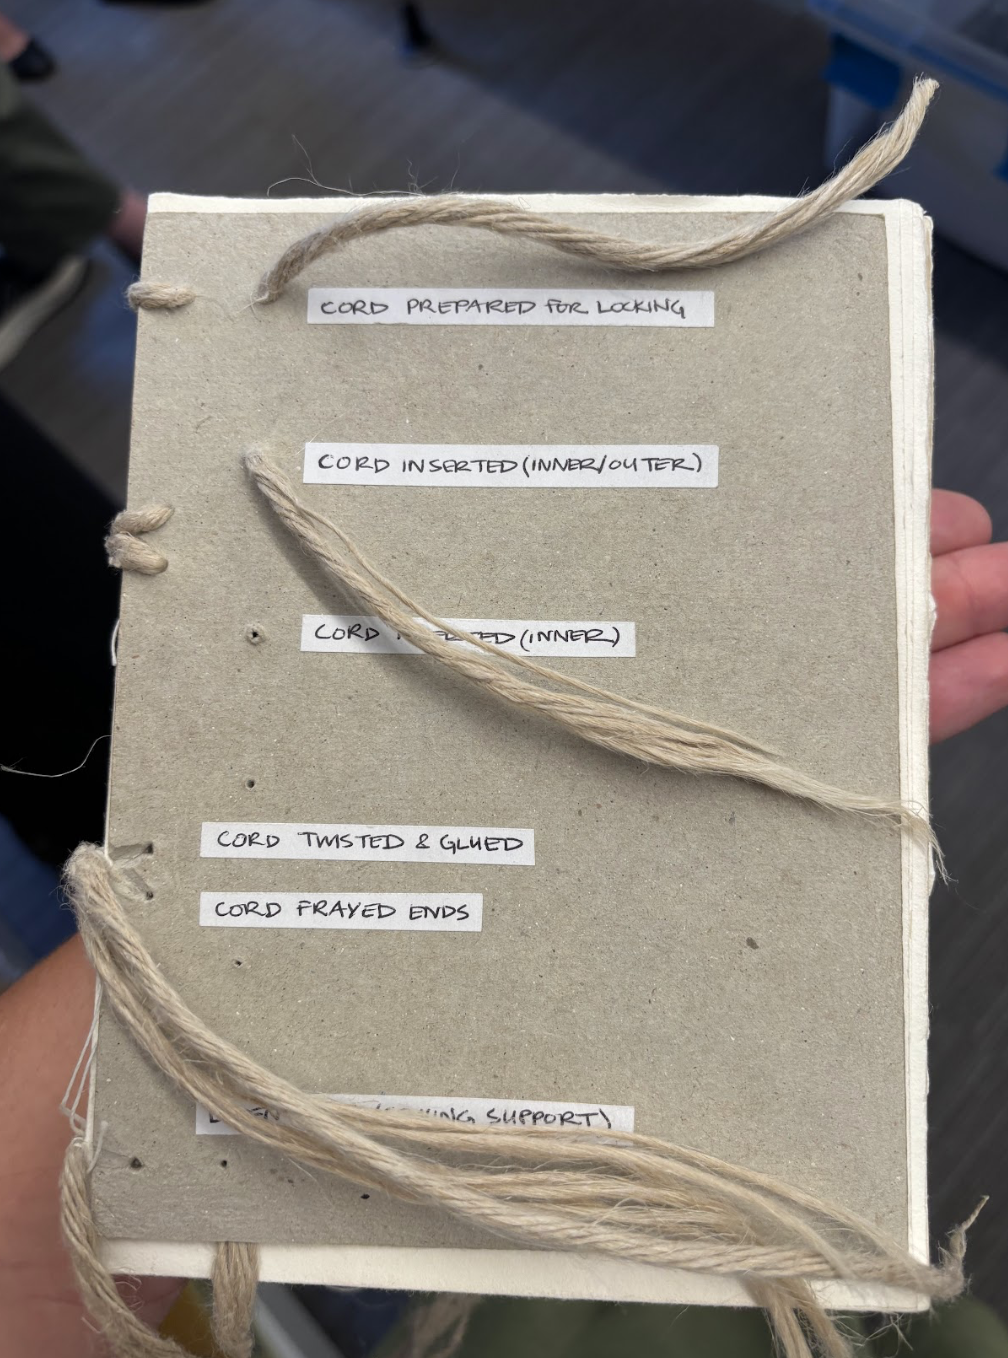 CORD PREPARED FOR LOCKING
CORD INSERTED (INNER/OUTER)
CORD (INNER)
CORD TWISTED & GLUED
CORD FRAYED ENDS
SUPPORT)